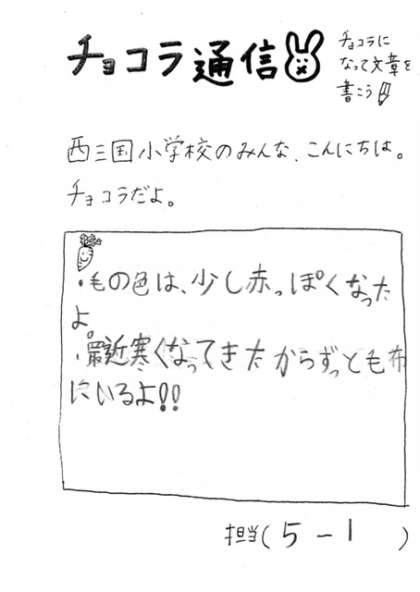 チョコラ通信
チョコラに
なって文章を
書こう
西三国小学校のみんな、こんにちは。
チョコラだよ。
・毛の色は、少し赤っぽくなった
よ。
・最近寒くなってきたからずっと毛布
にいるよ!!
担当(5-1)